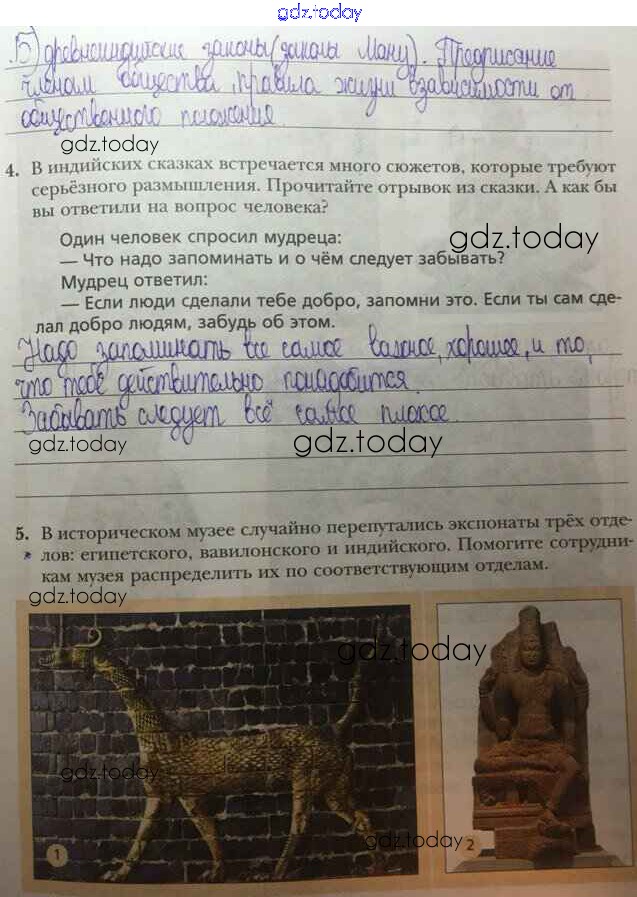 gdz.today
Б) древнеиндийские законы (законы Ману). Предписание
членам общества правила жизни взависимости от
общественного положения
gdz.today
4. В индийских сказках встречается много сюжетов, которые требуют
серьёзного размышления. Прочитайте отрывок из сказки. А как бы
вы ответили на вопрос человека?
Один человек спросил мудреца:
gdz.today
— Что надо запоминать и о чём следует забывать?
Мудрец ответил:
— Если люди сделали тебе добро, запомни это. Если ты сам сде-
лал добро людям, забудь об этом.
Надо запоминать все самое важное, хорошее, и то,
что тебе действительно понадобится.
Забывать следует всё самое плохое.
gdz.today
gdz.today
5. В историческом музее случайно перепутались экспонаты трёх отде-
* лов: египетского, вавилонского и индийского. Помогите сотрудни-
кам музея распределить их по соответствующим отделам.
gdz.today
gdz.today
gdz.today
gdz.today
1
2